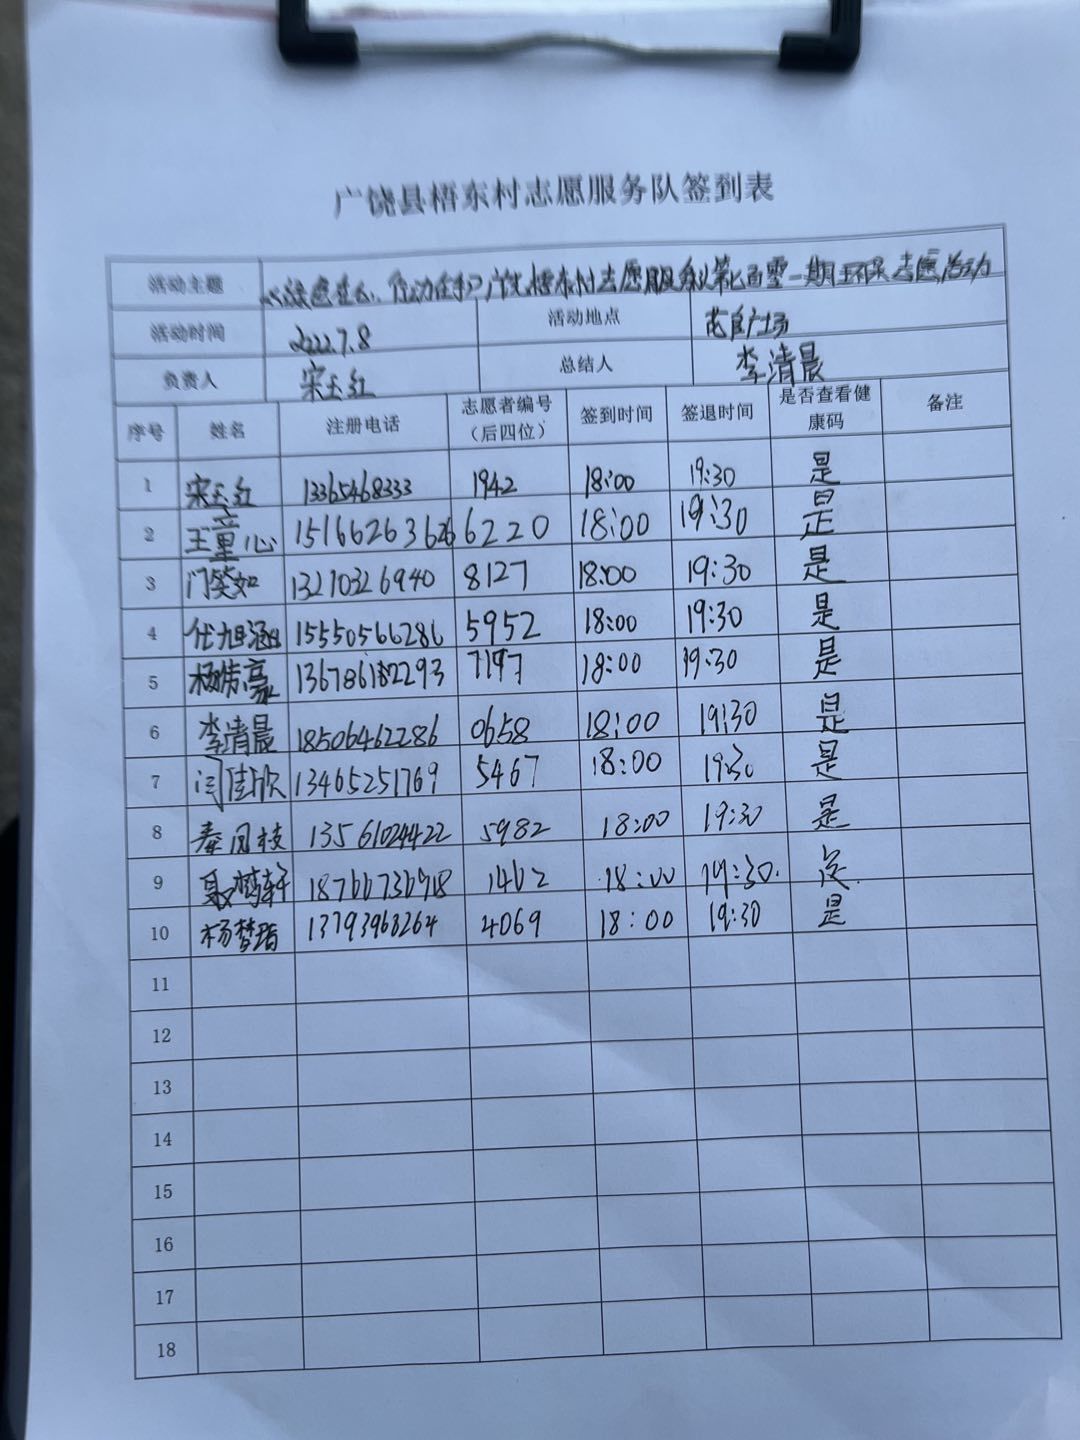 广饶县梧东村志愿服务队签到表
活动主题 "绿色在心、行动在手"广饶梧东村志愿服务队第七百零一期环保志愿活动
活动时间 2022.7.8 活动地点 花自广场
负责人 宋玉红 总结人 李清晨
序号 姓名 注册电话 志愿者编号（后四位） 签到时间 签退时间 是否查看健康码 备注
1 宋玉红 13365468333 1942 18:00 19:30 是
2 王童心 15166263626 6220 18:00 19:30 是
3 门笑如 13210326940 8127 18:00 19:30 是
4 代旭涵 15550566286 5952 18:00 19:30 是
5 杨浩豪 7197 18:00 19:30 是
6 李清晨 18506462286 0658 18:00 19:30 是
7 闫佳欣 13465251769 5467 18:00 19:30 是
8 秦凤枝 13561024422 5982 18:00 19:30 是
9 聂鹤轩 18766736918 1462 18:00 19:30. 是.
10 杨梦瑶 13793968264 4069 18:00 19:30 是
11
12
13
14
15
16
17
18